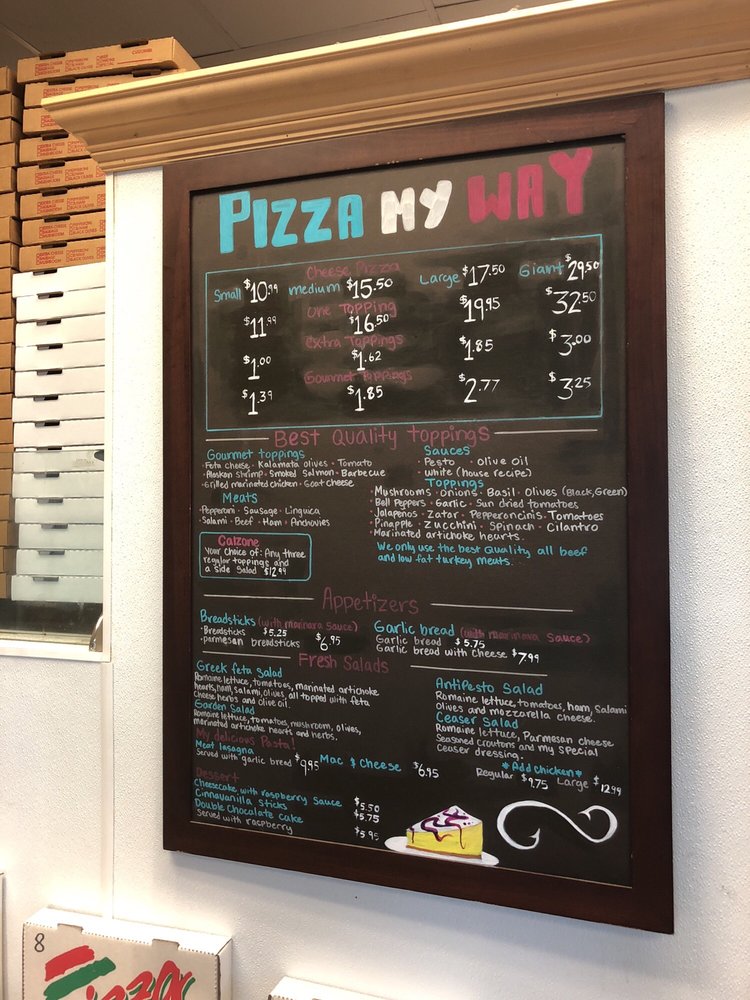 PIZZA MY WAY
Cheese Pizza
Small $10.99 medium $15.50 Large $17.50 Giant $29.50
One Topping
$11.99 $16.50 $19.95 $32.50
Extra Toppings
$1.00 $1.62 $1.85 $3.00
Gourmet Toppings
$1.39 $1.85 $2.77 $3.25
Best Quality toppings
Gourmet toppings
Feta cheese · Kalamata olives · Tomato
Alaskan shrimp · Smoked Salmon · Barbecue
Grilled marinated chicken · Goat cheese
Meats
Pepperoni · Sausage · Linguica
Salami · Beef · Ham · Anchovies
Sauces
· Pesto · olive oil
· white (house recipe)
Toppings
· Mushrooms · onions · Basil · Olives (Black, Green)
· Bell Peppers · Garlic · Sun dried tomatoes
· Jalapenos · Zatar · Pepperoncinis · Tomatoes
· Pinapple · Zucchini · Spinach · Cilantro
· Marinated artichoke hearts.
We only use the best quality all beef
and low fat turkey meats.
Calzone
Your choice of: Any three
regular toppings and
a side Salad $12.99
Appetizers
Breadsticks (with marinara sauce)
· Breadsticks $5.25
· parmesan breadsticks $6.95
Garlic bread (with marinara sauce)
Garlic bread $5.75
Garlic bread with cheese $7.99
Fresh Salads
Greek feta Salad
Romaine lettuce, tomatoes, marinated artichoke
hearts, ham, salami, olives, all topped with feta
cheese herbs and olive oil.
Garden Salad
Romaine lettuce, tomatoes, mushroom, olives,
marinated artichoke hearts and herbs.
AntiPesto Salad
Romaine lettuce, tomatoes, ham, salami
olives and mozzorella cheese.
Ceaser Salad
Romaine lettuce, Parmesan cheese
Seasoned croutons and my special
ceaser dressing.
*Add Chicken*
Regular $9.75 Large $12.99
My delicious Pasta!
Meat lasagna
Served with garlic bread $9.95 Mac & Cheese $6.95
Dessert
Cheesecake, with raspberry Sauce $5.50
Cinnavanilla sticks $5.75
Double Chocolate cake
Served with raspberry $5.95
8
Pizza